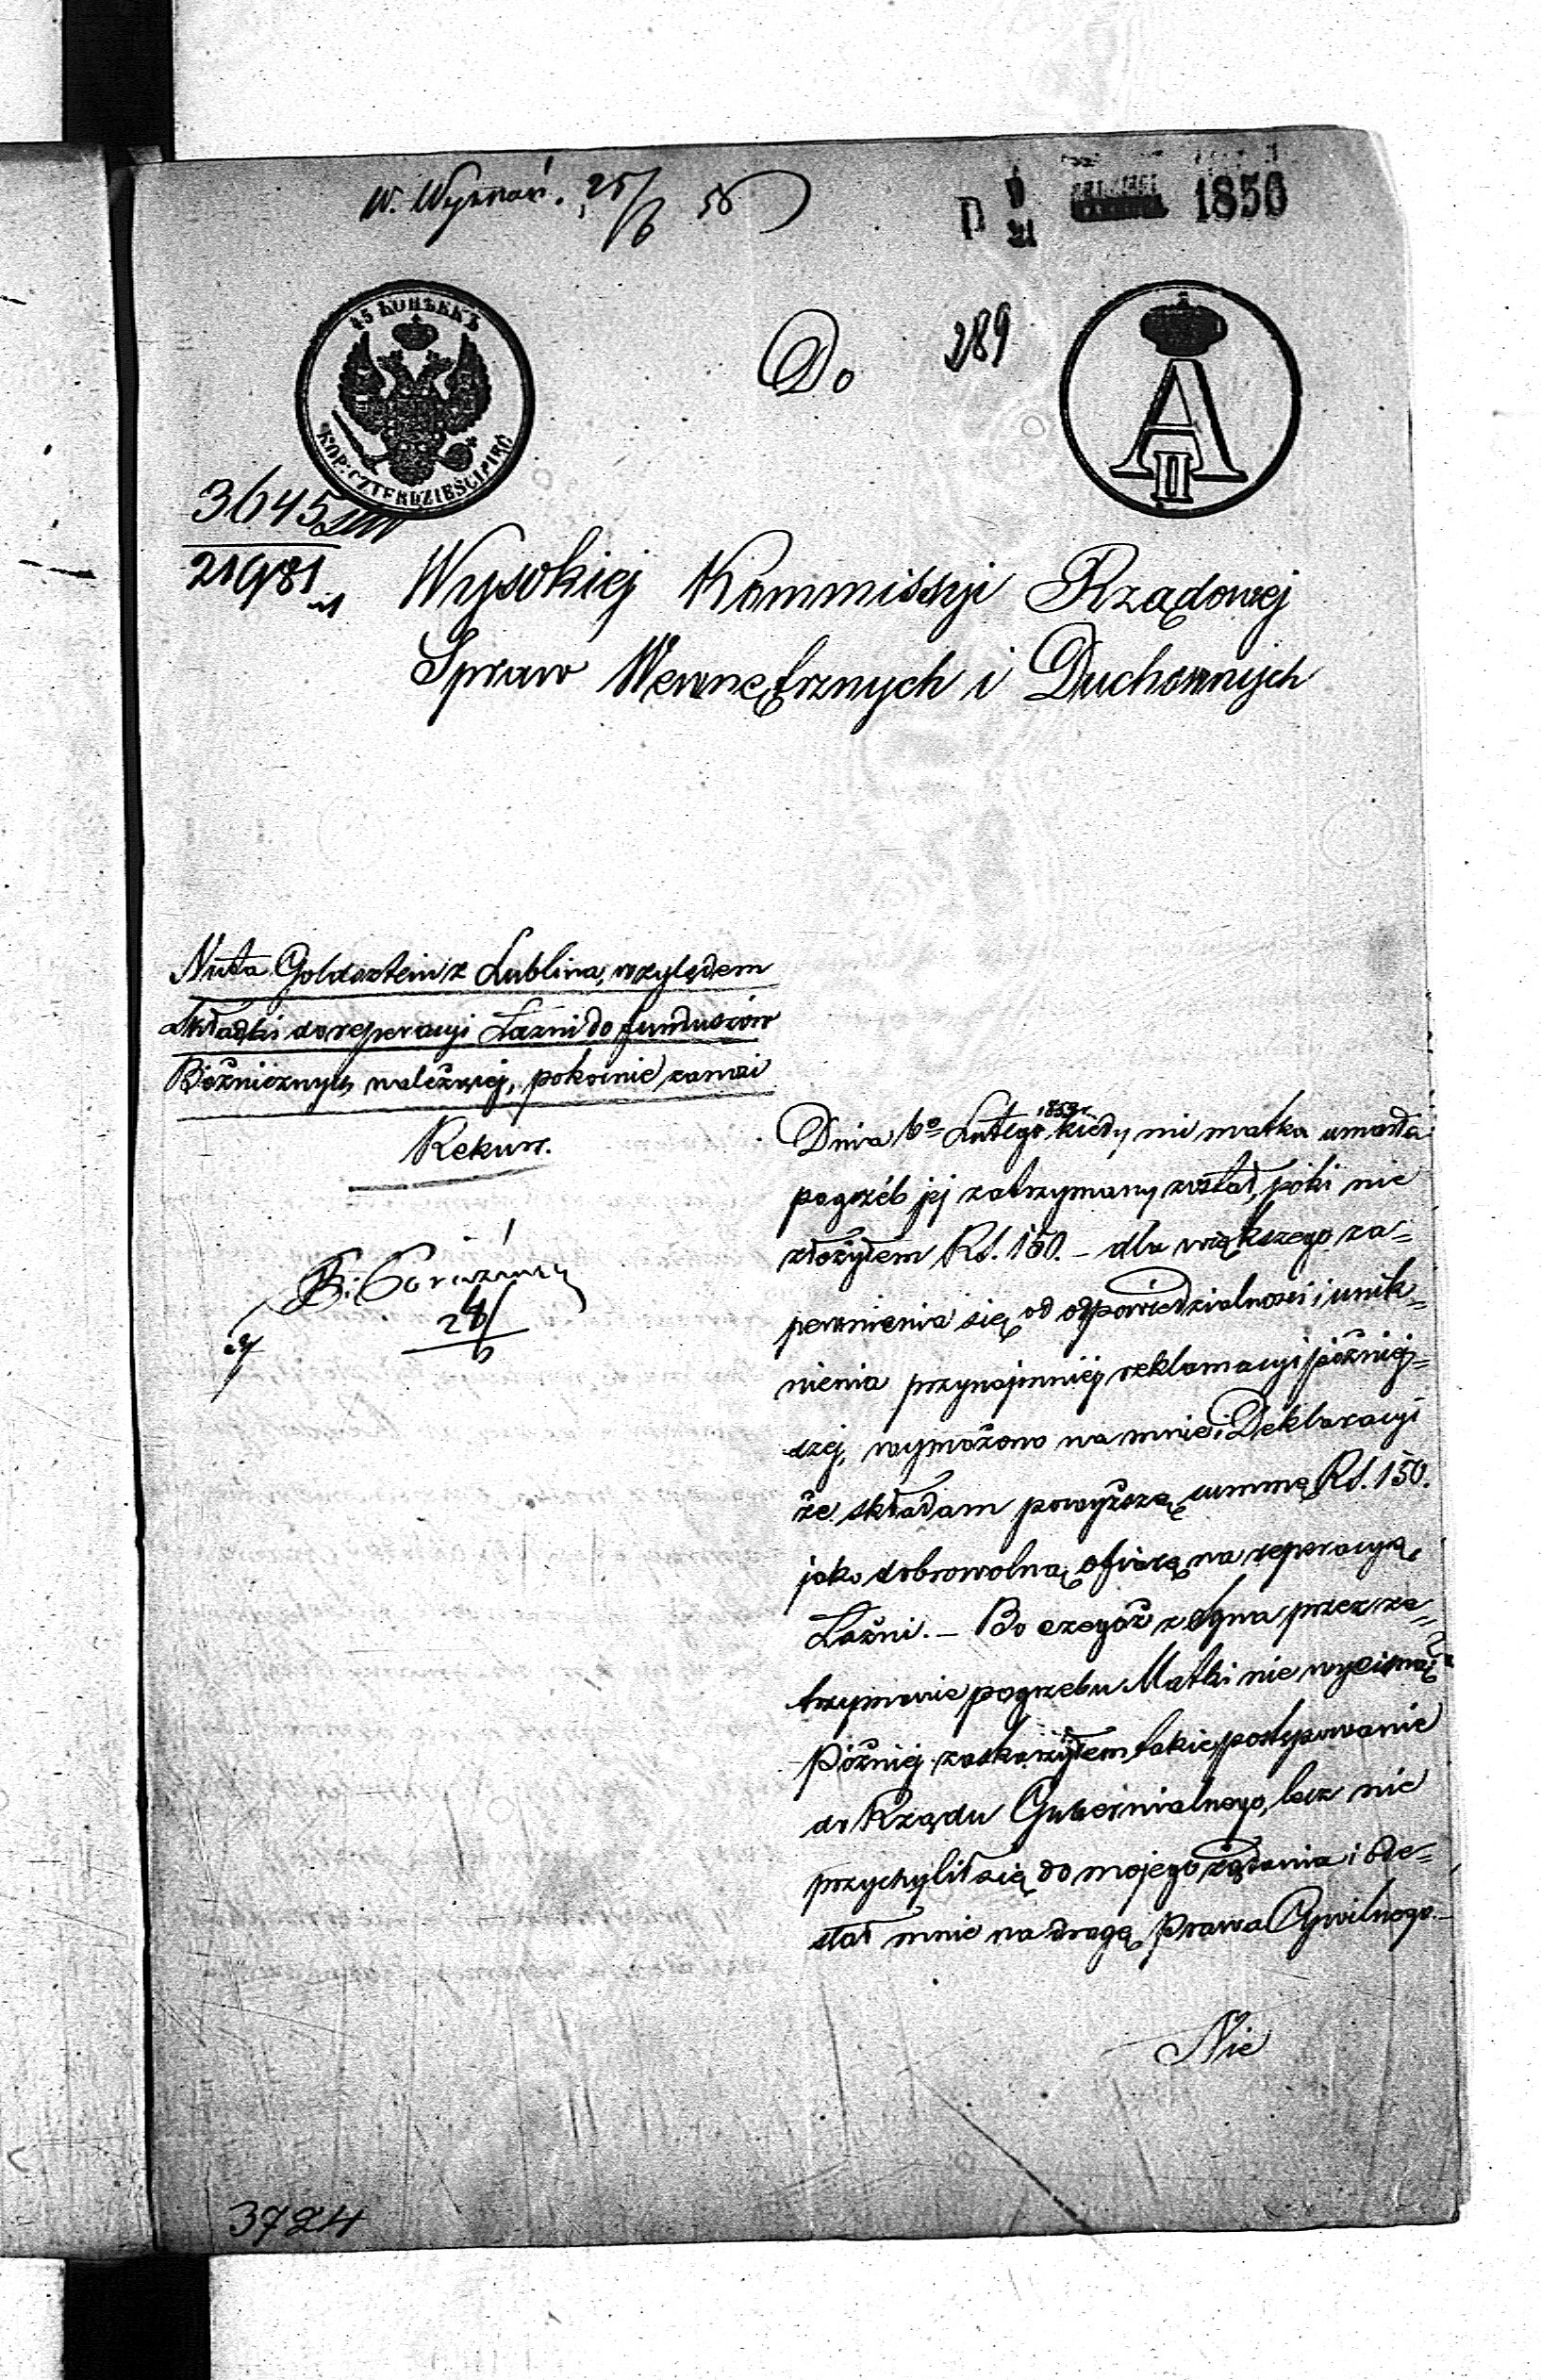 W. Wyznań. 25/6 58
1850
45 КОПѢЕКЪ
KOP: CZTERDZIEŚCI PIĘĆ
Do
289
A II
3645
21981
Wysokiej Kommissyi Rządowej
Spraw Wewnętrznych i Duchownych
Nuta Goldsztein z Lublina, względem
Składki do reperacyi Łaźni do funduszów
Bożnicznych należącej, pokornie zanosi
Rekurs.
24/6
Dnia 6º Lutego 1858r. kiedy mi matka umarła
pogrzéb jej zatrzymany został, póki nie
złożyłem Rs. 150. – dla większego za=
pewnienia się od odpowiedzialności i unik=
nienia przynajmniéj reklamacyi późniéj=
szej, wymożono na mnie i Deklaracyi
że składam powyższą summę Rs. 150.
jako dobrowolną ofiarę na reperacyą
Łaźni. – Bo czegóż z syna przez za=
trzymanie pogrzebu Matki nie wycisną?
Późniéj zaskarżyłem takie postępowanie
do Rządu Gubernialnego, lecz nie
przychylił się do mojego żądania i ode=
słał mnie na drogę Prawa Cywilnego. –
Nie
3724